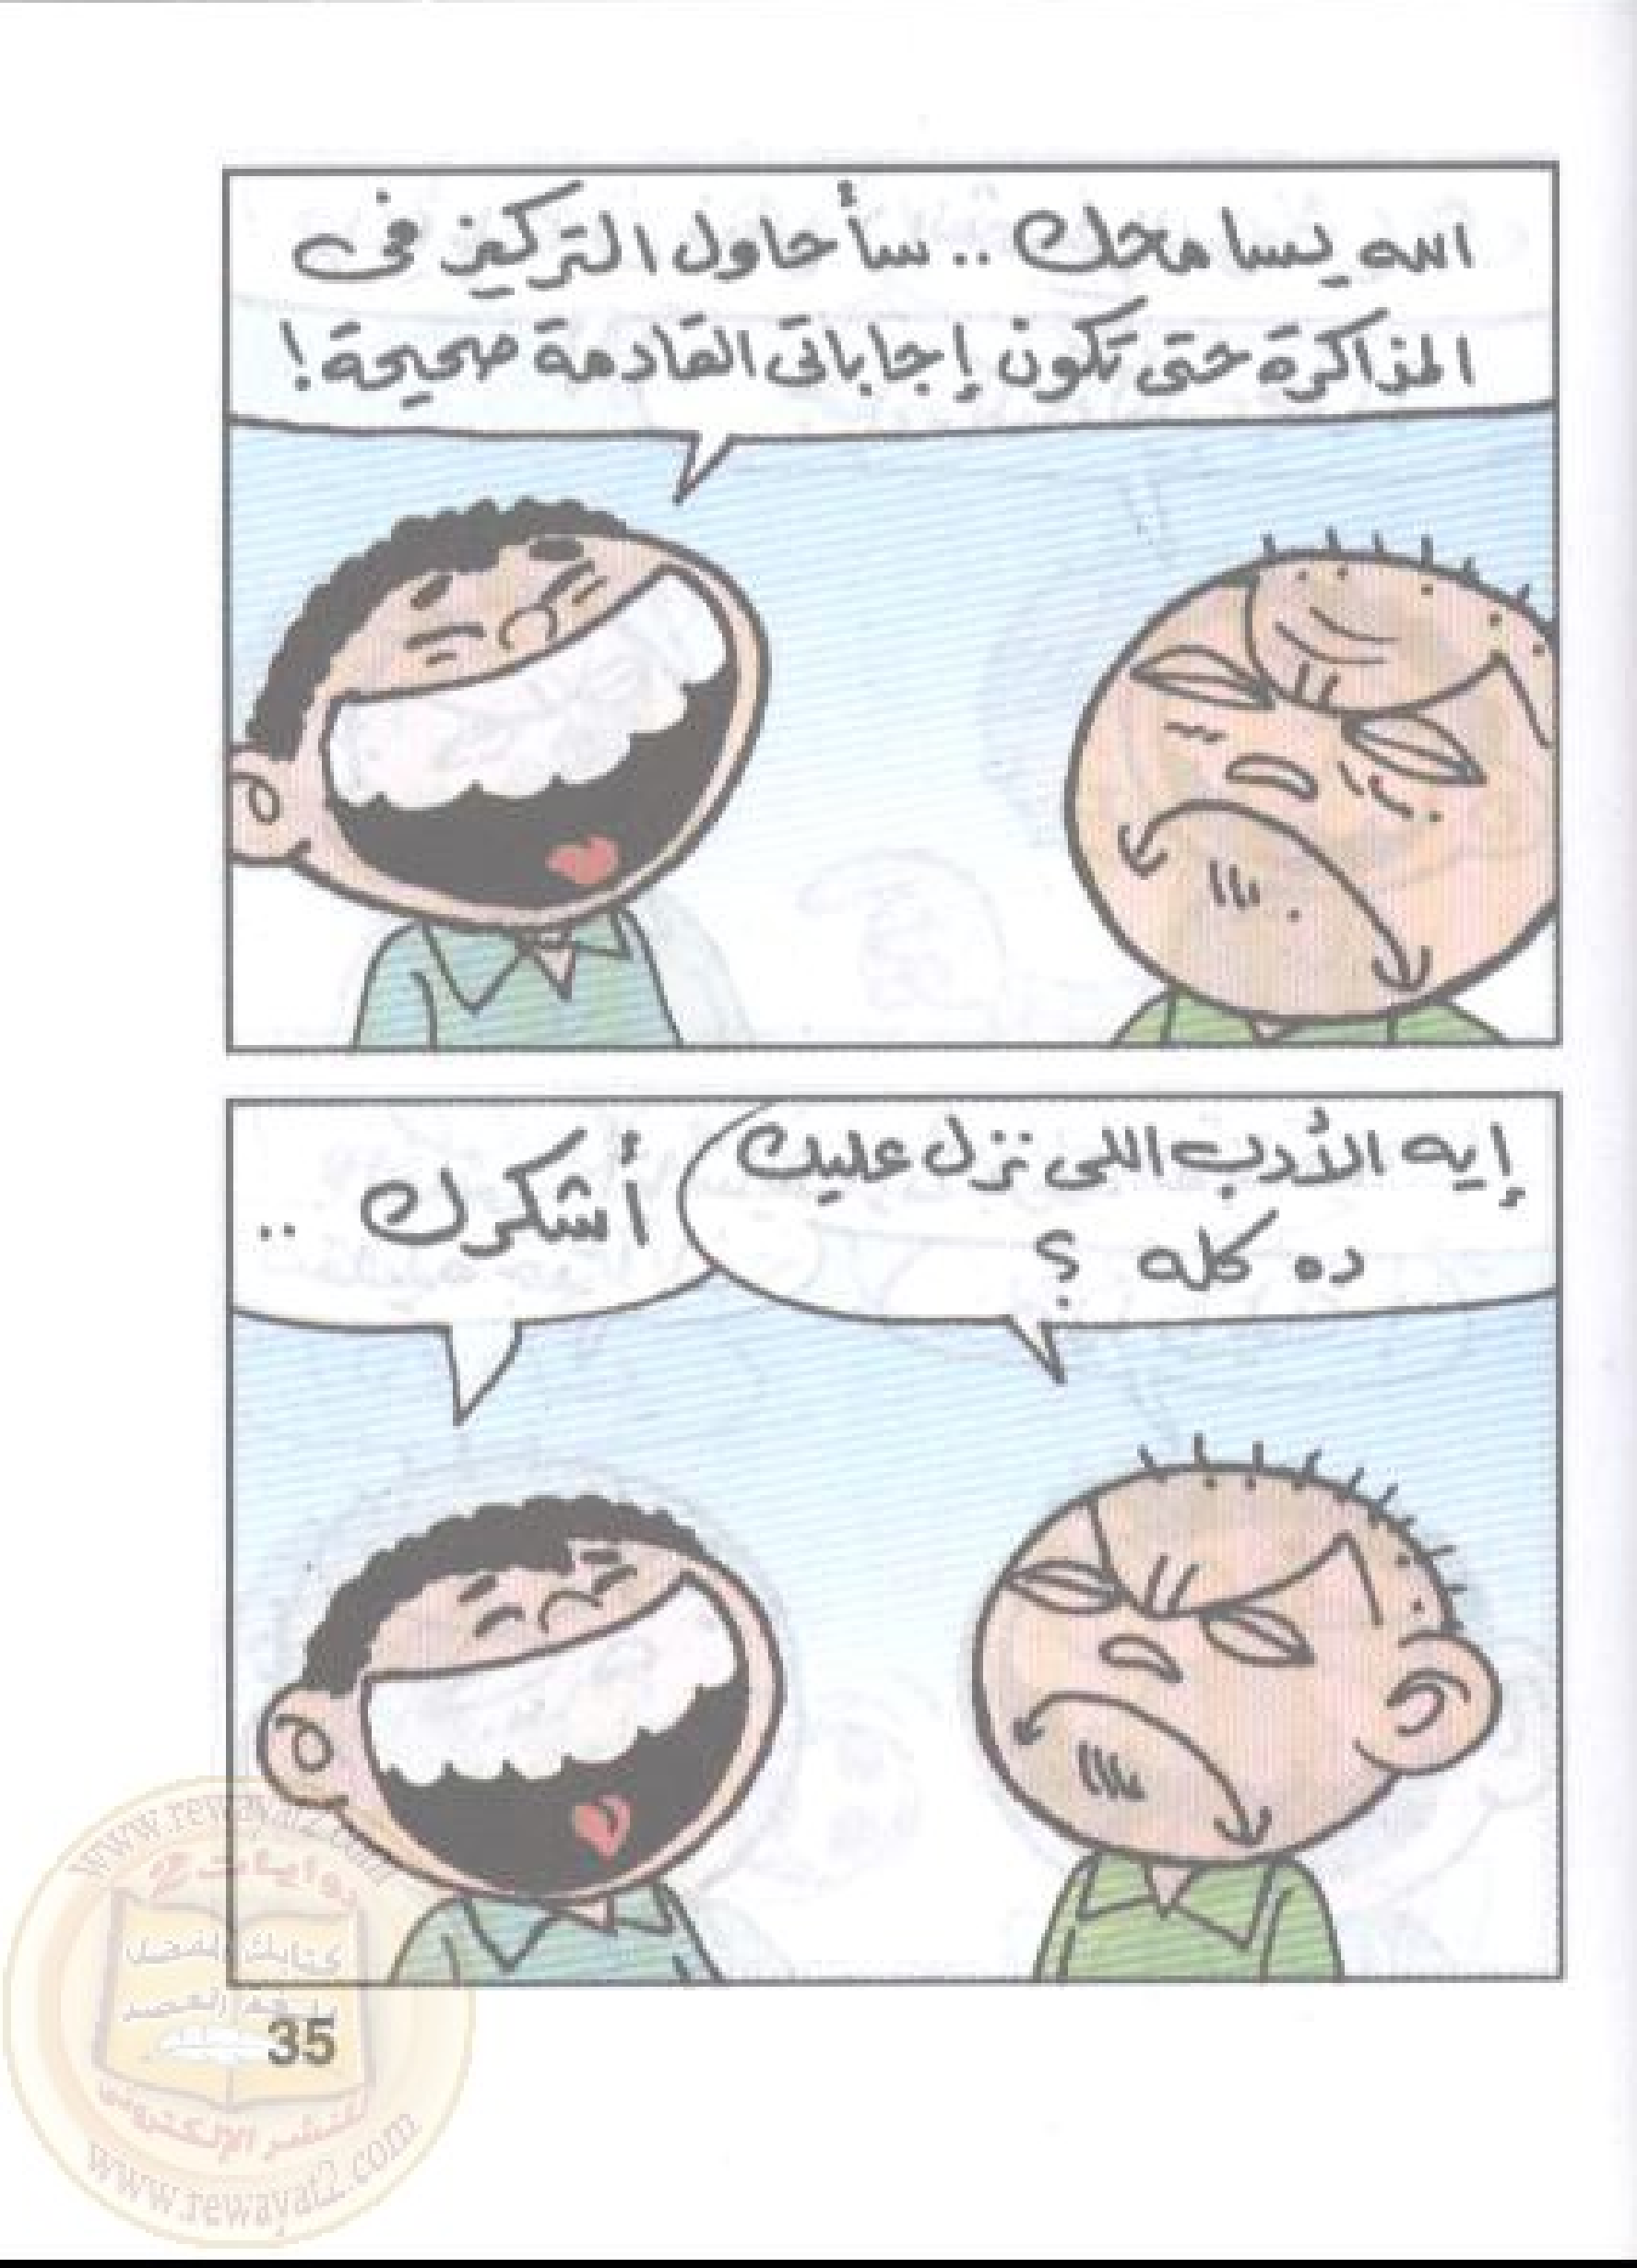 الله يسامحك .. سأحاول التركيز فى
المذاكرة حتى تكون إجاباتى القادمة صحيحة!
إيه الأدب اللى نزل عليك
ده كله ؟
أشكرك ..
www.rewayat2.com
روايات 2
35
للنشر الإلكترونى
www.rewayat2.com